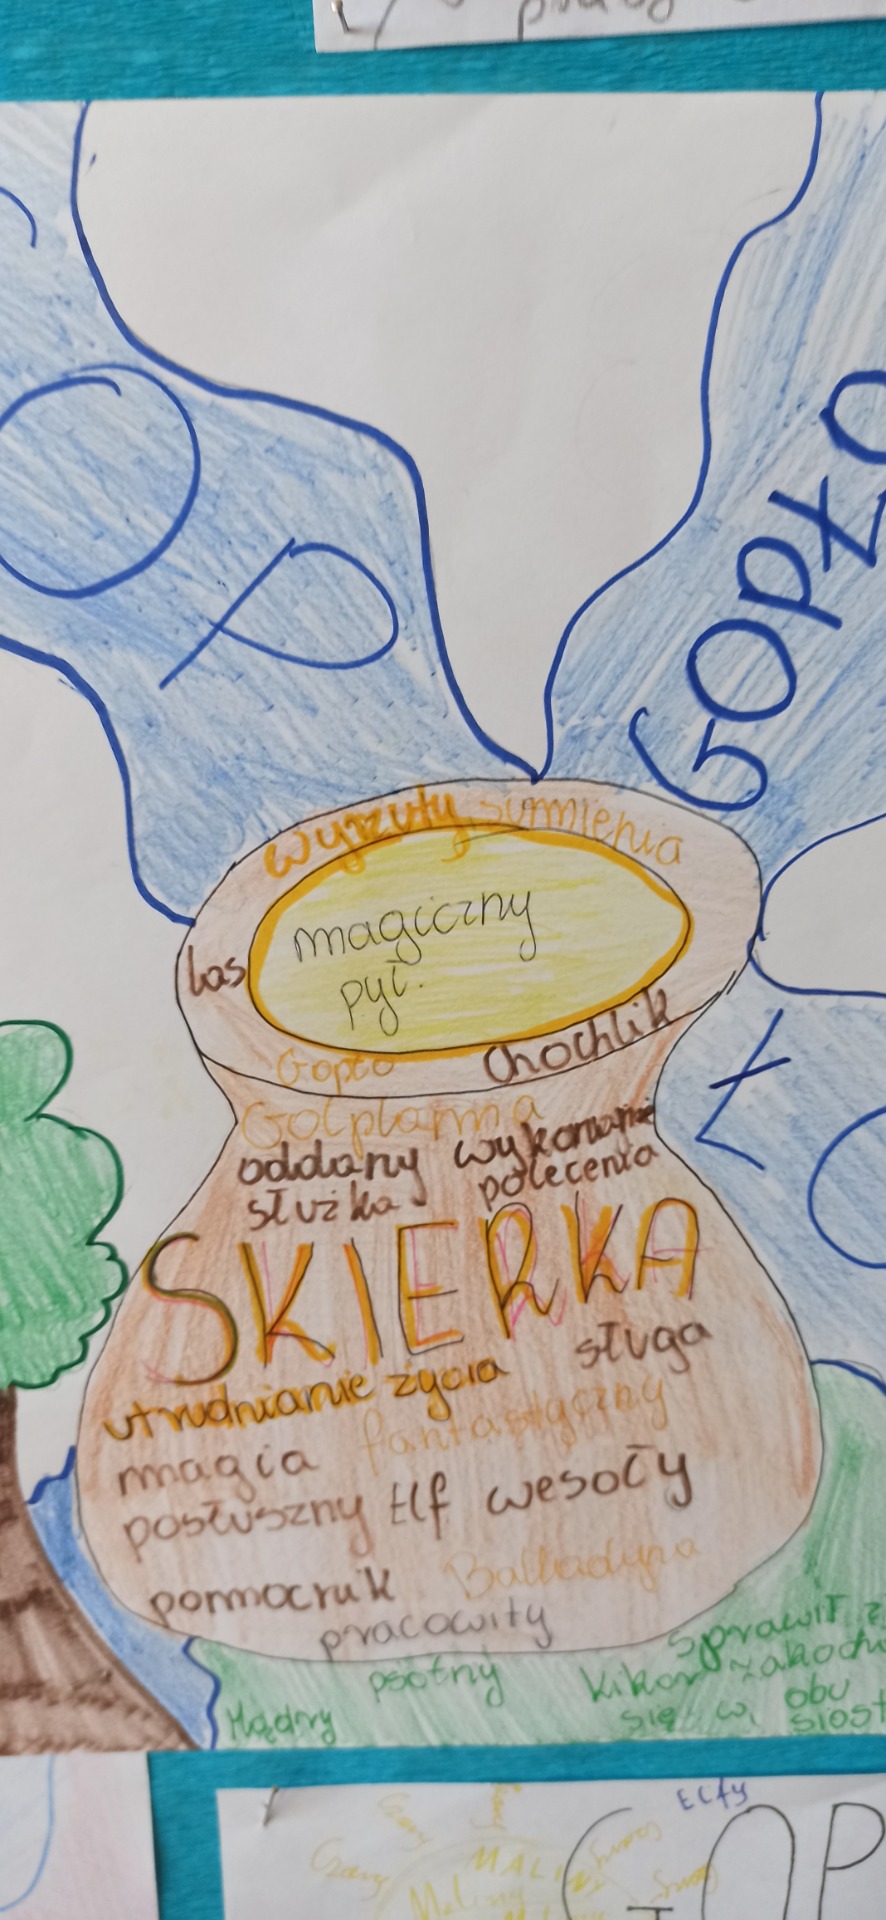 pracy
GOPŁO
OP
ŁO
wyrzuty sumienia
magiczny
pył.
las
Gopło Chochlik
Golplanna
oddany wykonanie
służka polecenia
SKIERKA
utrudnianie życia sługa
magia fantastyczny
posłuszny Elf wesoły
pomocnik Balladyna
pracowity
psotny
Mądry
sprawił
Kikor zakoch
się w obu
siost
Elfy
GOP
MALI
Maliny